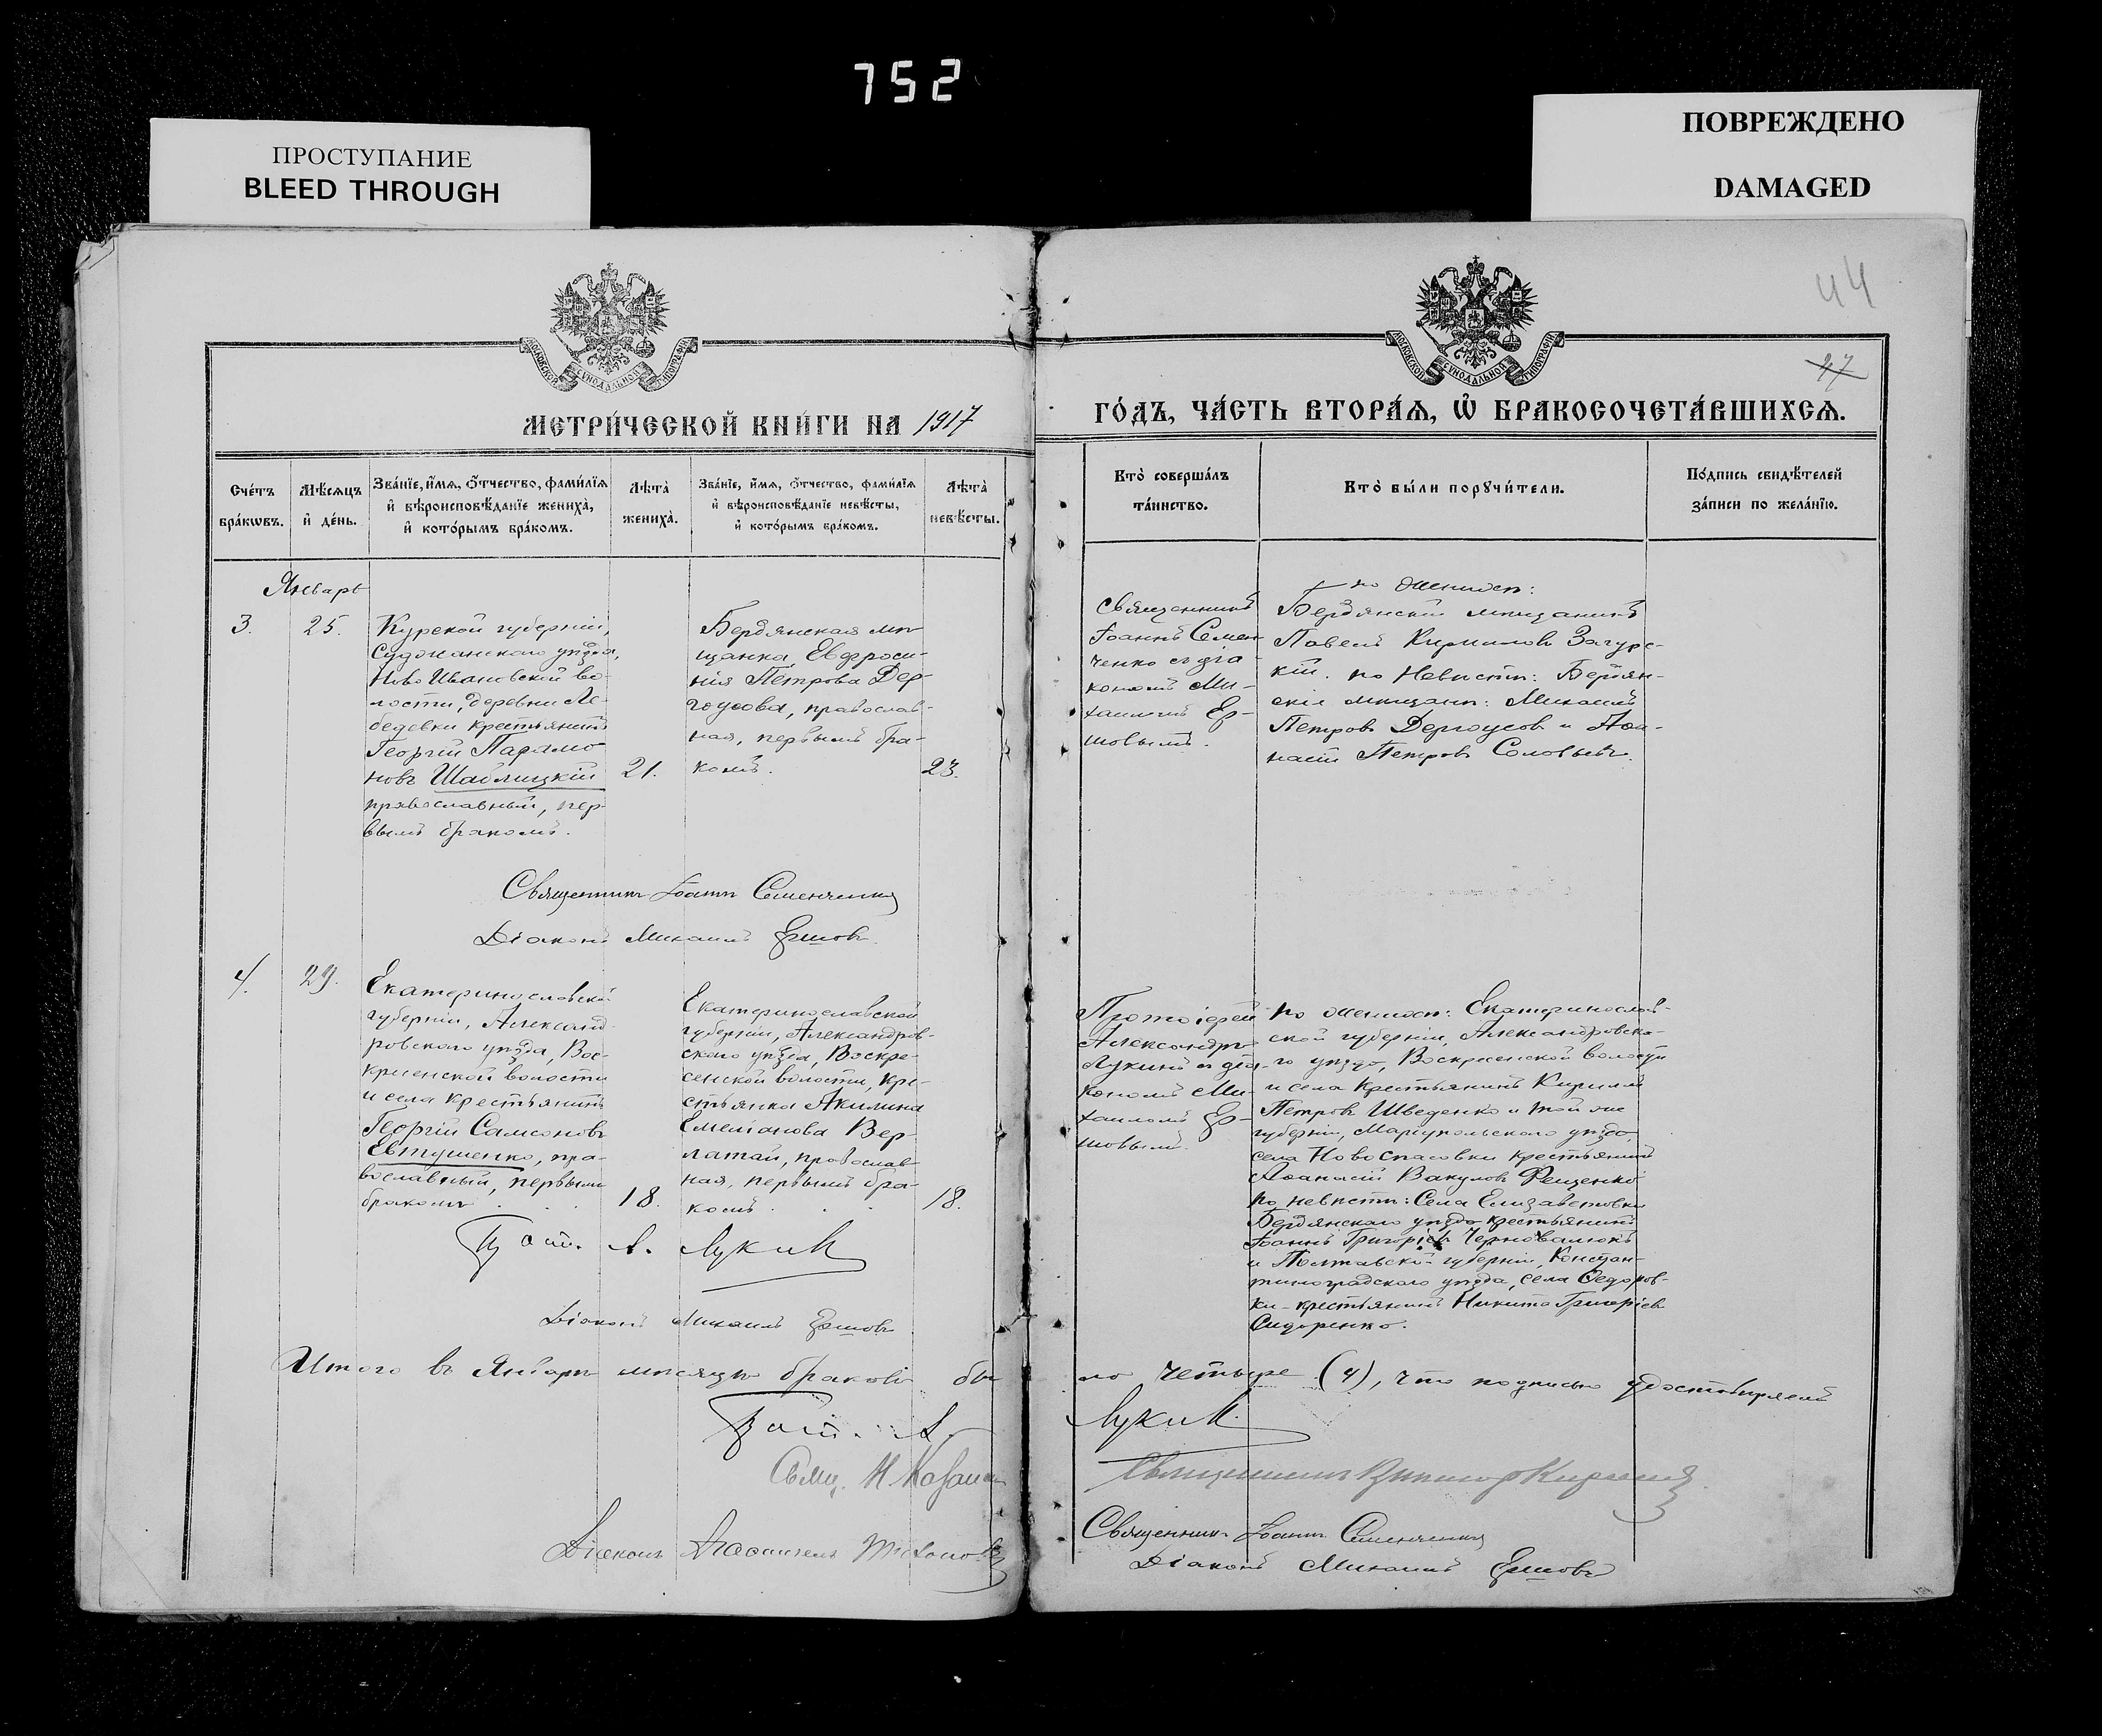 752
ПРОСТУПАНИЕ
BLEED THROUGH
ПОВРЕЖДЕНО
DAMAGED
44
27
МОСКОВСКОЙ СѴНОДАЛЬНОЙ ТИПОГРАФІИ
МОСКОВСКОЙ СѴНОДАЛЬНОЙ ТИПОГРАФІИ
МЕТРИ́ЧЕСКОЙ КНИ́ГИ НА 1917
ГО́ДЪ, ЧА́СТЬ ВТОРА́Ѧ, Ѡ҆ БРАКОСОЧЕТА́ВШИХСѦ.
Сче́тъ
бра́кѡвъ.
Мѣ́сѧцъ
и҆ де́нь.
Зва́нїе, и҆́мѧ, ѻ҆́тчество, фами́лїѧ
и҆ вѣроисповѣ́данїе жениха̀,
и҆ кото́рымъ бра́комъ.
Лѣ́та
жениха̀.
Зва́нїе, и҆́мѧ, ѻ҆́тчество, фами́лїѧ
и҆ вѣроисповѣ́данїе невѣ́сты,
и҆ кото́рымъ бра́комъ.
Лѣ́та
невѣ́сты.
Кто̀ соверша́лъ
та́инство.
Кто̀ бы́ли порꙋчи́тели.
По́дпись свидѣ́телей
за́писи по жела́нїю.
Январь
3.
25.
Курской губерніи,
Суджанскаго уѣзда,
Ново Ивановской во-
лости, деревни Ле-
бедевки крестьянинъ
Георгій Парамо
новъ Шаблицкій
православный, пер-
вымъ бракомъ.
21.
Бердянская мѣ-
щанка, Евфроси-
нія Петрова Дер-
гоусова, православ-
ная, первымъ бра-
комъ.
23.
Священникъ
Іоаннъ Семен
ченко съ діа-
кономъ Ми-
хаиломъ Ер-
шовымъ.
по женихѣ:
Бердянскій мѣщанинъ
Павелъ Кирилловъ Загурс-
кій. по Невѣстѣ: Бердян-
скіе мѣщане: Михаилъ
Петровъ Дергоусов и Аѳа-
насій Петровъ Соловьевъ.
Священникъ Іоаннъ Семенченко
Діаконъ Михаилъ Ершовъ
4.
29.
Екатеринославской
губерніи, Александ-
ровскаго уѣзда, Вос-
кресенской волости
и села крестьянинъ
Георгій Самсоновъ
Евтушенко, пра-
вославный, первымъ
бракомъ . . .
18.
Екатеринославской
губерніи, Александров-
скаго уѣзда, Воскре-
сенской волости, кре-
стьянка Акилина
Емеліанова Вер-
латай, православ-
ная, первымъ бра-
комъ . . .
18.
Протоіерей
Александръ
Лукинъ съ діа-
кономъ Ми-
хаиломъ Ер-
шовымъ.
по женихѣ: Екатеринослав-
ской губерніи, Александровска-
го уѣзда, Воскресенской волости
и села крестьянинъ Кириллъ
Петровъ Шведенко и той же
губерніи, Маріупольскаго уѣзда,
села Новоспасовки крестьянинъ
Аѳанасій Вакуловъ Фещенко
по невѣстѣ: Села Елизаветовки
Бердянскаго уѣзда крестьянинъ
Іоаннъ Григорьевъ Черновалюкъ
и Полтавской губерніи, Констан-
тиноградскаго уѣзда, села Ѳедоров-
ки-крестьянинъ Никита Григоріев
Сидоренко.
Прот. А. Лукин
Діаконъ Михаилъ Ершовъ
Итого въ Январѣ мѣсяцѣ браковъ бы
ло четыре (4), что подписью удостовѣряемъ
Прот. А.
Лукин.
Свящ. Н. Казан
Священникъ Виктор
Діаконъ
Священникъ Іоаннъ Семенченко
Діаконъ Михаилъ Ершовъ